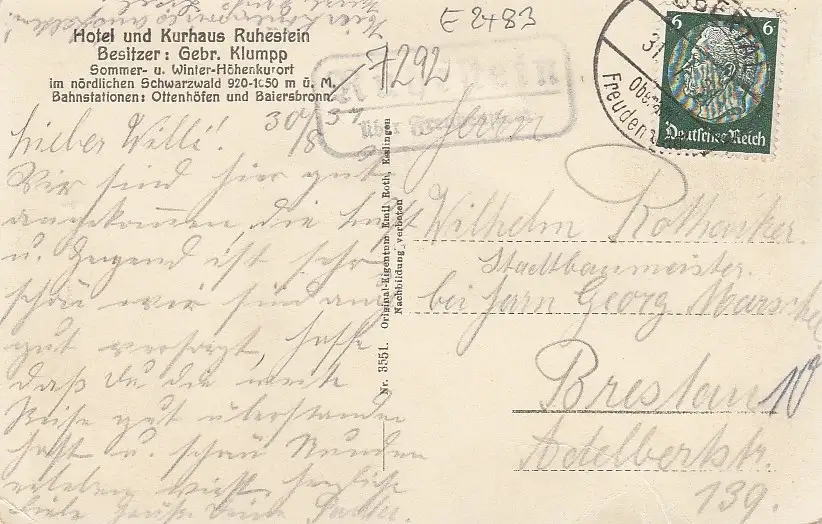 E 2483
Hotel und Kurhaus Ruhestein
Besitzer: Gebr. Klumpp
Sommer- u. Winter-Höhenkurort
im nördlichen Schwarzwald 920-1050 m ü. M.
Bahnstationen: Ottenhöfen und Baiersbronn
7292
30/8 37
Lieber Willi!
Wir sind hier gut
angekommen, die Luft
u. Gegend ist sehr
schön wir sind auch
gut versorgt, hoffe
daß Du die weite
Reise gut überstanden
hast u. schöne Stunden
erleben wirst. herzliche
viele Grüße Deine
Nr. 3551. Original-Eigentum Emil Roth, Esslingen
Nachbildung verboten
Ruhestein
über Freudenstadt
OBERTAL
31
Freuden
6 6
Deutsches Reich
Herrn
Wilhelm
Stadtbaumeister.
bei Georg
Breslau 10
Adelbertstr.
139.